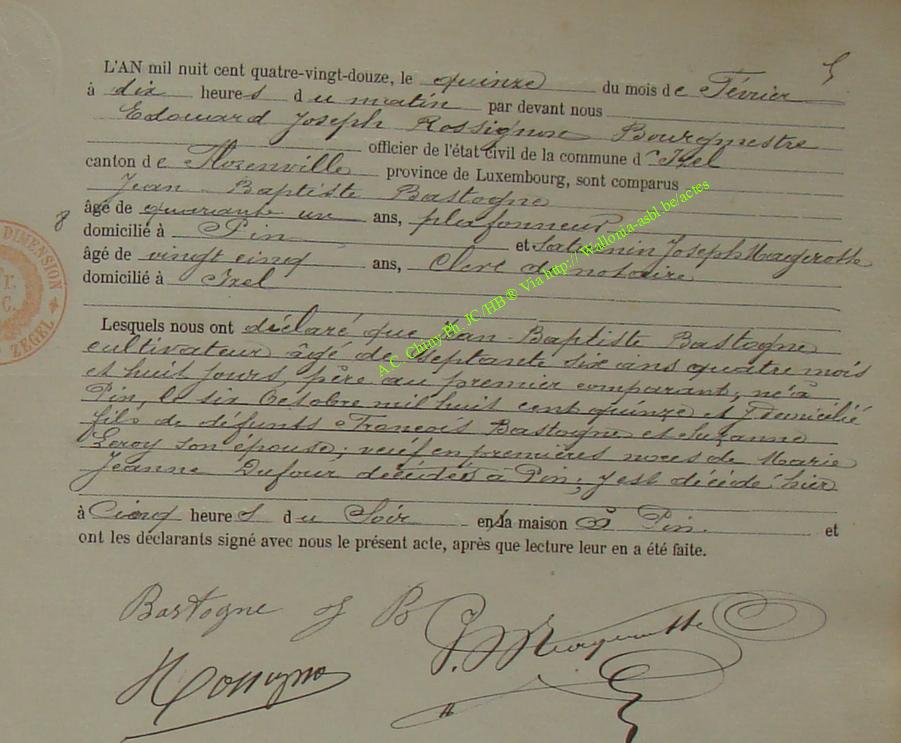 5
L'AN mil nuit cent quatre-vingt-douze, le quinze du mois de Février
à dix heures du matin par devant nous
Edouard Joseph Rossignon Bourgmestre
officier de l'état civil de la commune d'Izel
canton de Florenville province de Luxembourg, sont comparus
Jean Baptiste Bastogne
âgé de quarante un ans, plafonneur
8
domicilié à Pin et Saturnin Joseph Magerotte
âgé de vingt cinq ans, Clerc de notaire
domicilié à Izel
Lesquels nous ont déclaré que Jean-Baptiste Bastogne
cultivateur âgé de septante six ans quatre mois
et huit jours, père au premier comparant, né à
Pin, le six Octobre mil huit cent quinze et y domicilié
fils de défunts François Bastogne et Suzanne
Leroy son épouse; veuf en premières noces de Marie
Jeanne Dufour décédés à Pin; y est décédé hier
à Cinq heures du Soir en sa maison à Pin et
ont les déclarants signé avec nous le présent acte, après que lecture leur en a été faite.
Bastogne J B
J. Magerotte
Rossignon
DIMENSION
ZEGEL
A.C. Chiny Ph JC /HB ® Via http:// Wallonia-asbl be/actes